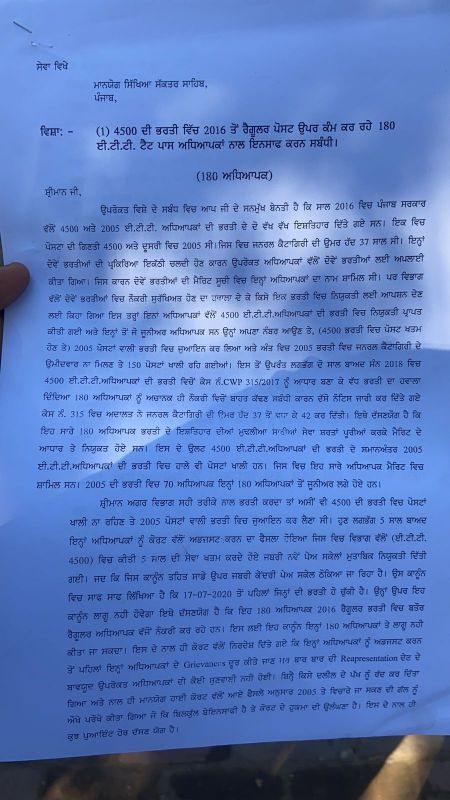 ਸੇਵਾ ਵਿਖੇ
ਮਾਨਯੋਗ ਸਿੱਖਿਆ ਸੱਕਤਰ ਸਾਹਿਬ,
ਪੰਜਾਬ,
ਵਿਸ਼ਾ: - (1) 4500 ਦੀ ਭਰਤੀ ਵਿੱਚ 2016 ਤੋਂ ਰੈਗੂਲਰ ਪੋਸਟ ਉਪਰ ਕੰਮ ਕਰ ਰਹੇ 180
ਈ.ਟੀ.ਟੀ. ਟੈਟ ਪਾਸ ਅਧਿਆਪਕਾਂ ਨਾਲ ਇਨਸਾਫ ਕਰਨ ਸਬੰਧੀ।
(180 ਅਧਿਆਪਕ)
ਸ਼੍ਰੀਮਾਨ ਜੀ,
ਉਪਰੋਕਤ ਵਿਸ਼ੇ ਦੇ ਸਬੰਧ ਵਿਚ ਆਪ ਜੀ ਦੇ ਸਨਮੁੱਖ ਬੇਨਤੀ ਹੈ ਕਿ ਸਾਲ 2016 ਵਿਚ ਪੰਜਾਬ ਸਰਕਾਰ
ਵੱਲੋਂ 4500 ਅਤੇ 2005 ਈ.ਟੀ.ਟੀ. ਅਧਿਆਪਕਾਂ ਦੀ ਭਰਤੀ ਦੇ ਦੋ ਵੱਖ ਵੱਖ ਇਸ਼ਤਿਹਾਰ ਦਿੱਤੇ ਗਏ ਸਨ। ਇਕ ਵਿਚ
ਪੋਸਟਾ ਦੀ ਗਿਣਤੀ 4500 ਅਤੇ ਦੂਸਰੀ ਵਿਚ 2005 ਸੀ। ਜਿਸ ਵਿਚ ਜਨਰਲ ਕੈਟਾਗਿਰੀ ਦੀ ਉਮਰ ਹੱਦ 37 ਸਾਲ ਸੀ। ਇਨ੍ਹਾਂ
ਦੋਵੇਂ ਭਰਤੀਆਂ ਦੀ ਪ੍ਰਕਿਰਿਆ ਇਕੱਠੀ ਚਲਦੀ ਹੋਣ ਕਾਰਨ ਉਪਰੋਕਤ ਅਧਿਆਪਕਾਂ ਵੱਲੋਂ ਦੋਵੇਂ ਭਰਤੀਆਂ ਲਈ ਅਪਲਾਈ
ਕੀਤਾ ਗਿਆ। ਜਿਸ ਕਾਰਨ ਦੋਵੇਂ ਭਰਤੀਆਂ ਦੀ ਮੈਰਿਟ ਸੂਚੀ ਵਿਚ ਇਨ੍ਹਾਂ ਅਧਿਆਪਕਾਂ ਦਾ ਨਾਮ ਸ਼ਾਮਿਲ ਸੀ। ਪਰ ਵਿਭਾਗ
ਵੱਲੋਂ ਦੋਵੇਂ ਭਰਤੀਆਂ ਵਿਚ ਨੌਕਰੀ ਸੁਰੱਖਿਅਤ ਹੋਣ ਦਾ ਹਵਾਲਾ ਦੇ ਕੇ ਕਿਸੇ ਇਕ ਭਰਤੀ ਵਿਚ ਨਿਯੁਕਤੀ ਲਈ ਆਪਸ਼ਨ ਦੇਣ
ਲਈ ਕਿਹਾ ਗਿਆ ਇਸ ਤਰ੍ਹਾਂ ਇਨ੍ਹਾਂ ਅਧਿਆਪਕਾਂ ਵੱਲੋਂ 4500 ਈ.ਟੀ.ਟੀ.ਅਧਿਆਪਕਾਂ ਦੀ ਭਰਤੀ ਵਿਚ ਨਿਯੁਕਤੀ ਪ੍ਰਾਪਤ
ਕੀਤੀ ਗਈ ਅਤੇ ਇਨ੍ਹਾਂ ਤੋਂ ਜੋ ਜੂਨੀਅਰ ਅਧਿਆਪਕ ਸਨ ਉਨ੍ਹਾਂ ਅਪਣਾ ਨੰਬਰ ਆਉਣ ਤੇ, (4500 ਭਰਤੀ ਵਿਚ ਪੋਸਟ ਖਤਮ
ਹੋਣ ਤੇ) 2005 ਪੋਸਟਾਂ ਵਾਲੀ ਭਰਤੀ ਵਿਚ ਜੁਆਇਨ ਕਰ ਲਿਆ ਅਤੇ ਅੰਤ ਵਿਚ 2005 ਭਰਤੀ ਵਿਚ ਜਨਰਲ ਕੈਟਾਗਿਰੀ ਦੇ
ਉਮੀਦਵਾਰ ਨਾ ਮਿਲਣ ਤੇ 150 ਪੋਸਟਾਂ ਖਾਲੀ ਰਹਿ ਗਈਆਂ। ਇਸ ਤੋਂ ਉਪਰੰਤ ਲਗਭੱਗ ਦੋ ਸਾਲ ਬਾਅਦ ਸੰਨ 2018 ਵਿਚ
4500 ਈ.ਟੀ.ਟੀ.ਅਧਿਆਪਕਾਂ ਦੀ ਭਰਤੀ ਵਿਚੋਂ ਕੇਸ ਨੰ.CWP 315/2017 ਨੂੰ ਆਧਾਰ ਬਣਾ ਕੇ ਵੱਧ ਭਰਤੀ ਦਾ ਹਵਾਲਾ
ਦਿੰਦਿਆ 180 ਅਧਿਆਪਕਾਂ ਨੂੰ ਅਚਾਨਕ ਹੀ ਨੌਕਰੀ ਵਿਚੋਂ ਬਾਹਰ ਕੱਢਣ ਸਬੰਧੀ ਕਾਰਨ ਦੱਸੋ ਨੋਟਿਸ ਜਾਰੀ ਕਰ ਦਿੱਤੇ ਗਏ
ਕੇਸ ਨੰ. 315 ਵਿਚ ਅਦਾਲਤ ਨੇ ਜਨਰਲ ਕੈਟਾਗਿਰੀ ਦੀ ਉਮਰ ਹੱਦ 37 ਤੋਂ ਵਧਾ ਕੇ 42 ਕਰ ਦਿੱਤੀ। ਇਥੇ ਦੱਸਣਯੋਗ ਹੈ ਕਿ
ਇਹ ਸਾਰੇ 180 ਅਧਿਆਪਕ ਭਰਤੀ ਦੇ ਇਸ਼ਤਿਹਾਰ ਦੀਆਂ ਮੁਢਲੀਆ ਸੇਵਾ ਸ਼ਰਤਾਂ ਪੂਰੀਆਂ ਕਰਕੇ ਮੈਰਿਟ ਦੇ
ਆਧਾਰ ਤੇ ਨਿਯੁਕਤ ਹੋਏ ਸਨ। ਇਸ ਦੇ ਉਲਟ 4500 ਈ.ਟੀ.ਟੀ.ਅਧਿਆਪਕਾਂ ਦੀ ਭਰਤੀ ਦੇ ਸਮਾਨਅੰਤਰ 2005
ਈ.ਟੀ.ਟੀ.ਅਧਿਆਪਕਾਂ ਦੀ ਭਰਤੀ ਵਿਚ ਹਾਲੇ ਵੀ ਪੋਸਟਾਂ ਖਾਲੀ ਹਨ। ਜਿਸ ਵਿਚ ਇਹ ਸਾਰੇ ਅਧਿਆਪਕ ਮੈਰਿਟ ਵਿਚ
ਸ਼ਾਮਿਲ ਸਨ। 2005 ਦੀ ਭਰਤੀ ਵਿਚ 70 ਅਧਿਆਪਕ ਇਨ੍ਹਾਂ 180 ਅਧਿਆਪਕਾਂ ਤੋਂ ਜੂਨੀਅਰ ਲਗੇ ਹੋਏ ਹਨ।
ਸ਼੍ਰੀਮਾਨ ਅਗਰ ਵਿਭਾਗ ਸਹੀ ਤਰੀਕੇ ਨਾਲ ਭਰਤੀ ਕਰਦਾ ਤਾਂ ਅਸੀਂ ਵੀ 4500 ਦੀ ਭਰਤੀ ਵਿਚ ਪੋਸਟਾਂ
ਖਾਲੀ ਨਾ ਰਹਿਣ ਤੇ 2005 ਪੋਸਟਾਂ ਵਾਲੀ ਭਰਤੀ ਵਿਚ ਜੁਆਇਨ ਕਰ ਲੈਣਾ ਸੀ। ਹੁਣ ਲਗਭੱਗ 5 ਸਾਲ ਬਾਅਦ
ਇਨ੍ਹਾਂ ਅਧਿਆਪਕਾਂ ਨੂੰ ਕੋਰਟ ਵੱਲੋਂ ਅਡਜਸਟ ਕਰਨ ਦਾ ਫੈਸਲਾ ਹੋਇਆ ਜਿਸ ਵਿਚ ਵਿਭਾਗ ਵੱਲੋਂ (ਈ.ਟੀ.ਟੀ.
4500) ਵਿਚ ਕੀਤੀ 5 ਸਾਲ ਦੀ ਸੇਵਾ ਖਤਮ ਕਰਦੇ ਹੋਏ ਜਬਰੀ ਨਵੇਂ ਪੇਅ ਸਕੇਲਾਂ ਮੁਤਾਬਿਕ ਨਿਯੁਕਤੀ ਦਿੱਤੀ
ਗਈ। ਜਦ ਕਿ ਜਿਸ ਕਾਨੂੰਨ ਤਹਿਤ ਸਾਡੇ ਉਪਰ ਜਬਰੀ ਕੇਂਦਰੀ ਪੇਅ ਸਕੇਲ ਠੋਕਿਆ ਜਾ ਰਿਹਾ ਹੈ। ਉਸ ਕਾਨੂੰਨ
ਵਿਚ ਸਾਫ ਸਾਫ ਲਿੱਖਿਆ ਹੈ ਕਿ 17-07-2020 ਤੋਂ ਪਹਿਲਾਂ ਜਿਨ੍ਹਾਂ ਦੀ ਭਰਤੀ ਹੋ ਚੁੱਕੀ ਹੈ। ਉਨ੍ਹਾਂ ਉਪਰ ਇਹ
ਕਾਨੂੰਨ ਲਾਗੂ ਨਹੀ ਹੋਵੇਗਾ ਇਥੇ ਦੱਸਣਯੋਗ ਹੈ ਕਿ ਇਹ 180 ਅਧਿਆਪਕ 2016 ਰੈਗੂਲਰ ਭਰਤੀ ਵਿਚ ਬਤੌਰ
ਰੈਗੂਲਰ ਅਧਿਆਪਕ ਵੱਜੋਂ ਨੌਕਰੀ ਕਰ ਰਹੇ ਹਨ। ਇਸ ਲਈ ਇਹ ਕਾਨੂੰਨ ਇਨ੍ਹਾਂ 180 ਅਧਿਆਪਕਾਂ ਤੇ ਲਾਗੂ ਨਹੀਂ
ਕੀਤਾ ਜਾ ਸਕਦਾ। ਇਸ ਦੇ ਨਾਲ ਹੀ ਕੋਰਟ ਵੱਲੋਂ ਨਿਰਦੇਸ਼ ਦਿੱਤੇ ਗਏ ਕਿ ਇਨ੍ਹਾਂ ਅਧਿਆਪਕਾਂ ਨੂੰ ਅਡਜਸਟ ਕਰਨ
ਤੋਂ ਪਹਿਲਾਂ ਇਨ੍ਹਾਂ ਅਧਿਆਪਕਾਂ ਦੇ Grievances ਦੂਰ ਕੀਤੇ ਜਾਣ ਪਰ ਬਾਰ ਬਾਰ ਦੀ Reapresentation ਦੇਣ ਦੇ
ਬਾਵਯੂਦ ਉਪਰੋਕਤ ਅਧਿਆਪਕਾਂ ਦੀ ਕੋਈ ਸੁਣਵਾਈ ਨਹੀ ਹੋਈ। ਬਿਨ੍ਹਾਂ ਕਿਸੇ ਦਲੀਲ ਦੇ ਪੱਖ ਨੂੰ ਰੱਦ ਕਰ ਦਿੱਤਾ
ਗਿਆ ਅਤੇ ਨਾਲ ਹੀ ਮਾਨਯੋਗ ਹਾਈ ਕੋਰਟ ਵੱਲੋਂ ਆਏ ਫੈਸਲੇ ਅਨੁਸਾਰ 2005 ਤੇ ਵਿਚਾਰੇ ਜਾ ਸਕਣ ਦੀ ਗੱਲ ਨੂੰ
ਅੱਖੋ ਪਰੋਖੇ ਕੀਤਾ ਗਿਆ ਜੋ ਕਿ ਬਿਲਕੁੱਲ ਬੇਇਨਸਾਫੀ ਹੈ ਤੇ ਕੋਰਟ ਦੇ ਹੁਕਮਾ ਦੀ ਉਲੰਘਣਾ ਹੈ। ਇਸ ਦੇ ਨਾਲ ਹੀ
ਕੁਝ ਪੁਆਇੰਟ ਹੋਰ ਦੱਸਣ ਯੋਗ ਹੈ।